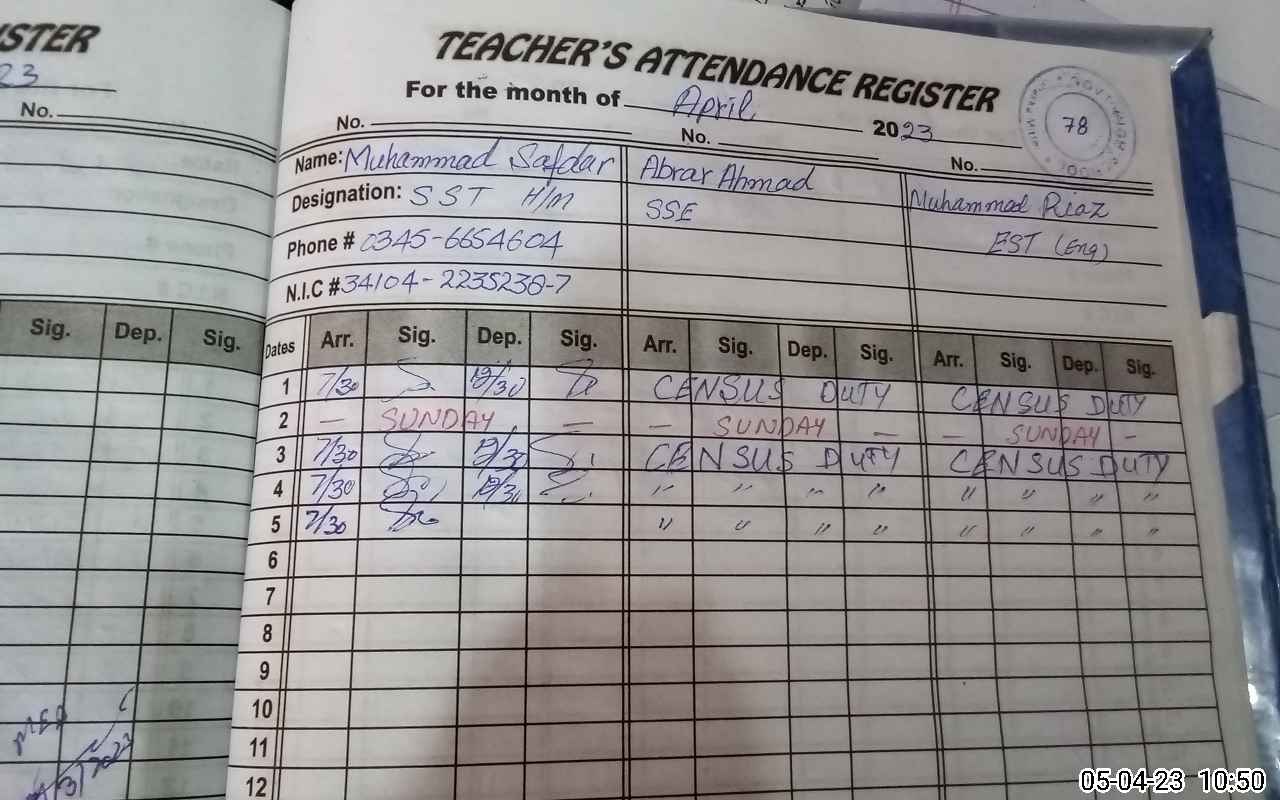 ISTER
23
No.
Sig. Dep. Sig.
TEACHER'S ATTENDANCE REGISTER
For the month of April 2023
78
No. No. No.
Name: Muhammad Safdar Abrar Ahmad Muhammad Riaz
Designation: SST H/M SSE EST (Eng)
Phone # 0345-6654604
N.I.C # 34104-2235238-7
Dates Arr. Sig. Dep. Sig. Arr. Sig. Dep. Sig. Arr. Sig. Dep. Sig.
1 7/30 12/30 CENSUS DUTY CENSUS DUTY
2 — SUNDAY — — SUNDAY — — SUNDAY -
3 7/30 12/30 CENSUS DUTY CENSUS DUTY
4 7/30 12/30 " " " " " " " "
5 7/30 " " " " " " " "
6
7
8
9
10
11
12
05-04-23 10:50